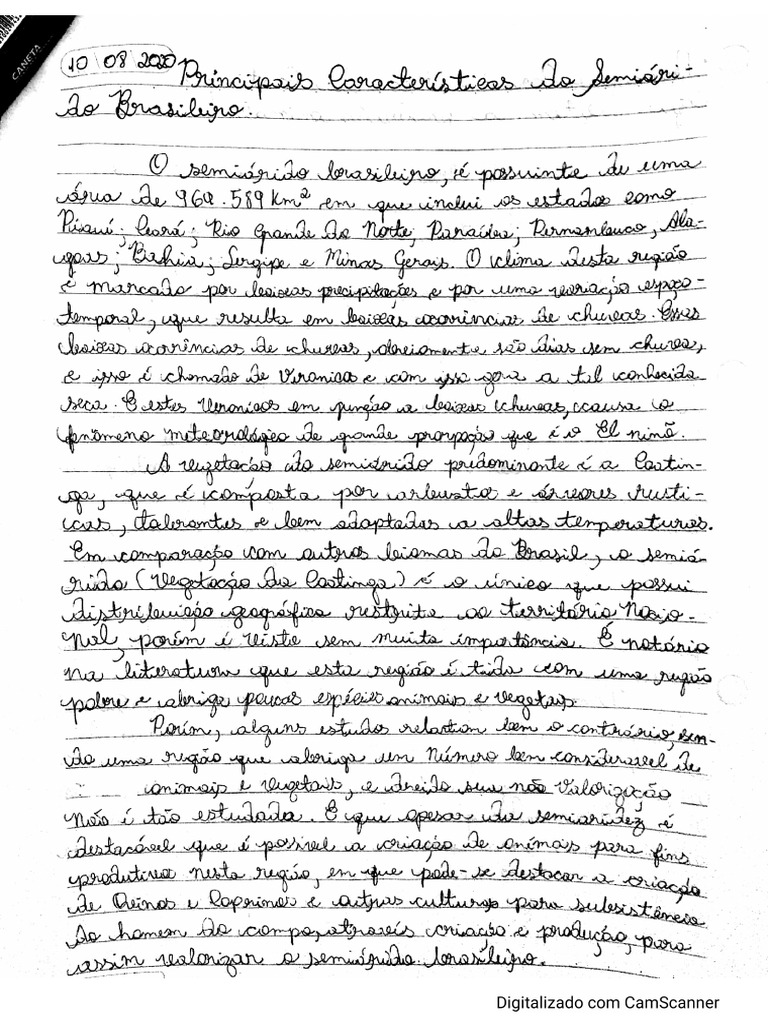 CANETA
10 08 2020 Principais Características do Semiári-
do Brasileiro.
O semiárido brasileiro, é possuinte de uma
área de 969.589 Km² em que inclui os estados como
Piauí; Ceará; Rio Grande do Norte; Paraíba; Pernambuco, Ala-
goas; Bahia; Sergipe e Minas Gerais. O clima desta região
é marcado por baixas precipitações e por uma variação espaço-
temporal, que resulta em baixas ocorrências de chuvas. Essas
baixas ocorrências de chuvas, obviamente são dias sem chuva,
e isso é chamado de Veranicos e com isso gera a tal conhecida
seca. E estes Veranicos em função a baixas chuvas, causa o
fenômeno meteorológico de grande proporção que é o El ninõ.
A vegetação do semiárido predominante é a Caatin-
ga, que é composta por arbustos e árvores rusti-
cas, tolerantes e bem adaptadas a altas temperaturas.
Em comparação com outros biomas do Brasil, o semiá-
rido (Vegetação da Caatinga) é o único que possui
distribuição geográfica restrita ao território Nacio-
nal, porém é visto sem muita importância. É notório
na literatura que esta região é tida com uma região
pobre e abriga poucas espécies animais e vegetais.
Porém, alguns estudos relatam bem o contrário, sen-
do uma região que abriga um número bem considerável de
animais e vegetais, e devido sua não valorização
não é tão estudada. E que apesar da semiaridez é
destacável que é possível a criação de animais para fins
produtivos nesta região, em que pode-se destacar a criação
de Ovinos e Caprinos e outras culturas para subsistência
do homem do campo, através criação e produção, para
assim valorizar o semiárido brasileiro.
Digitalizado com CamScanner